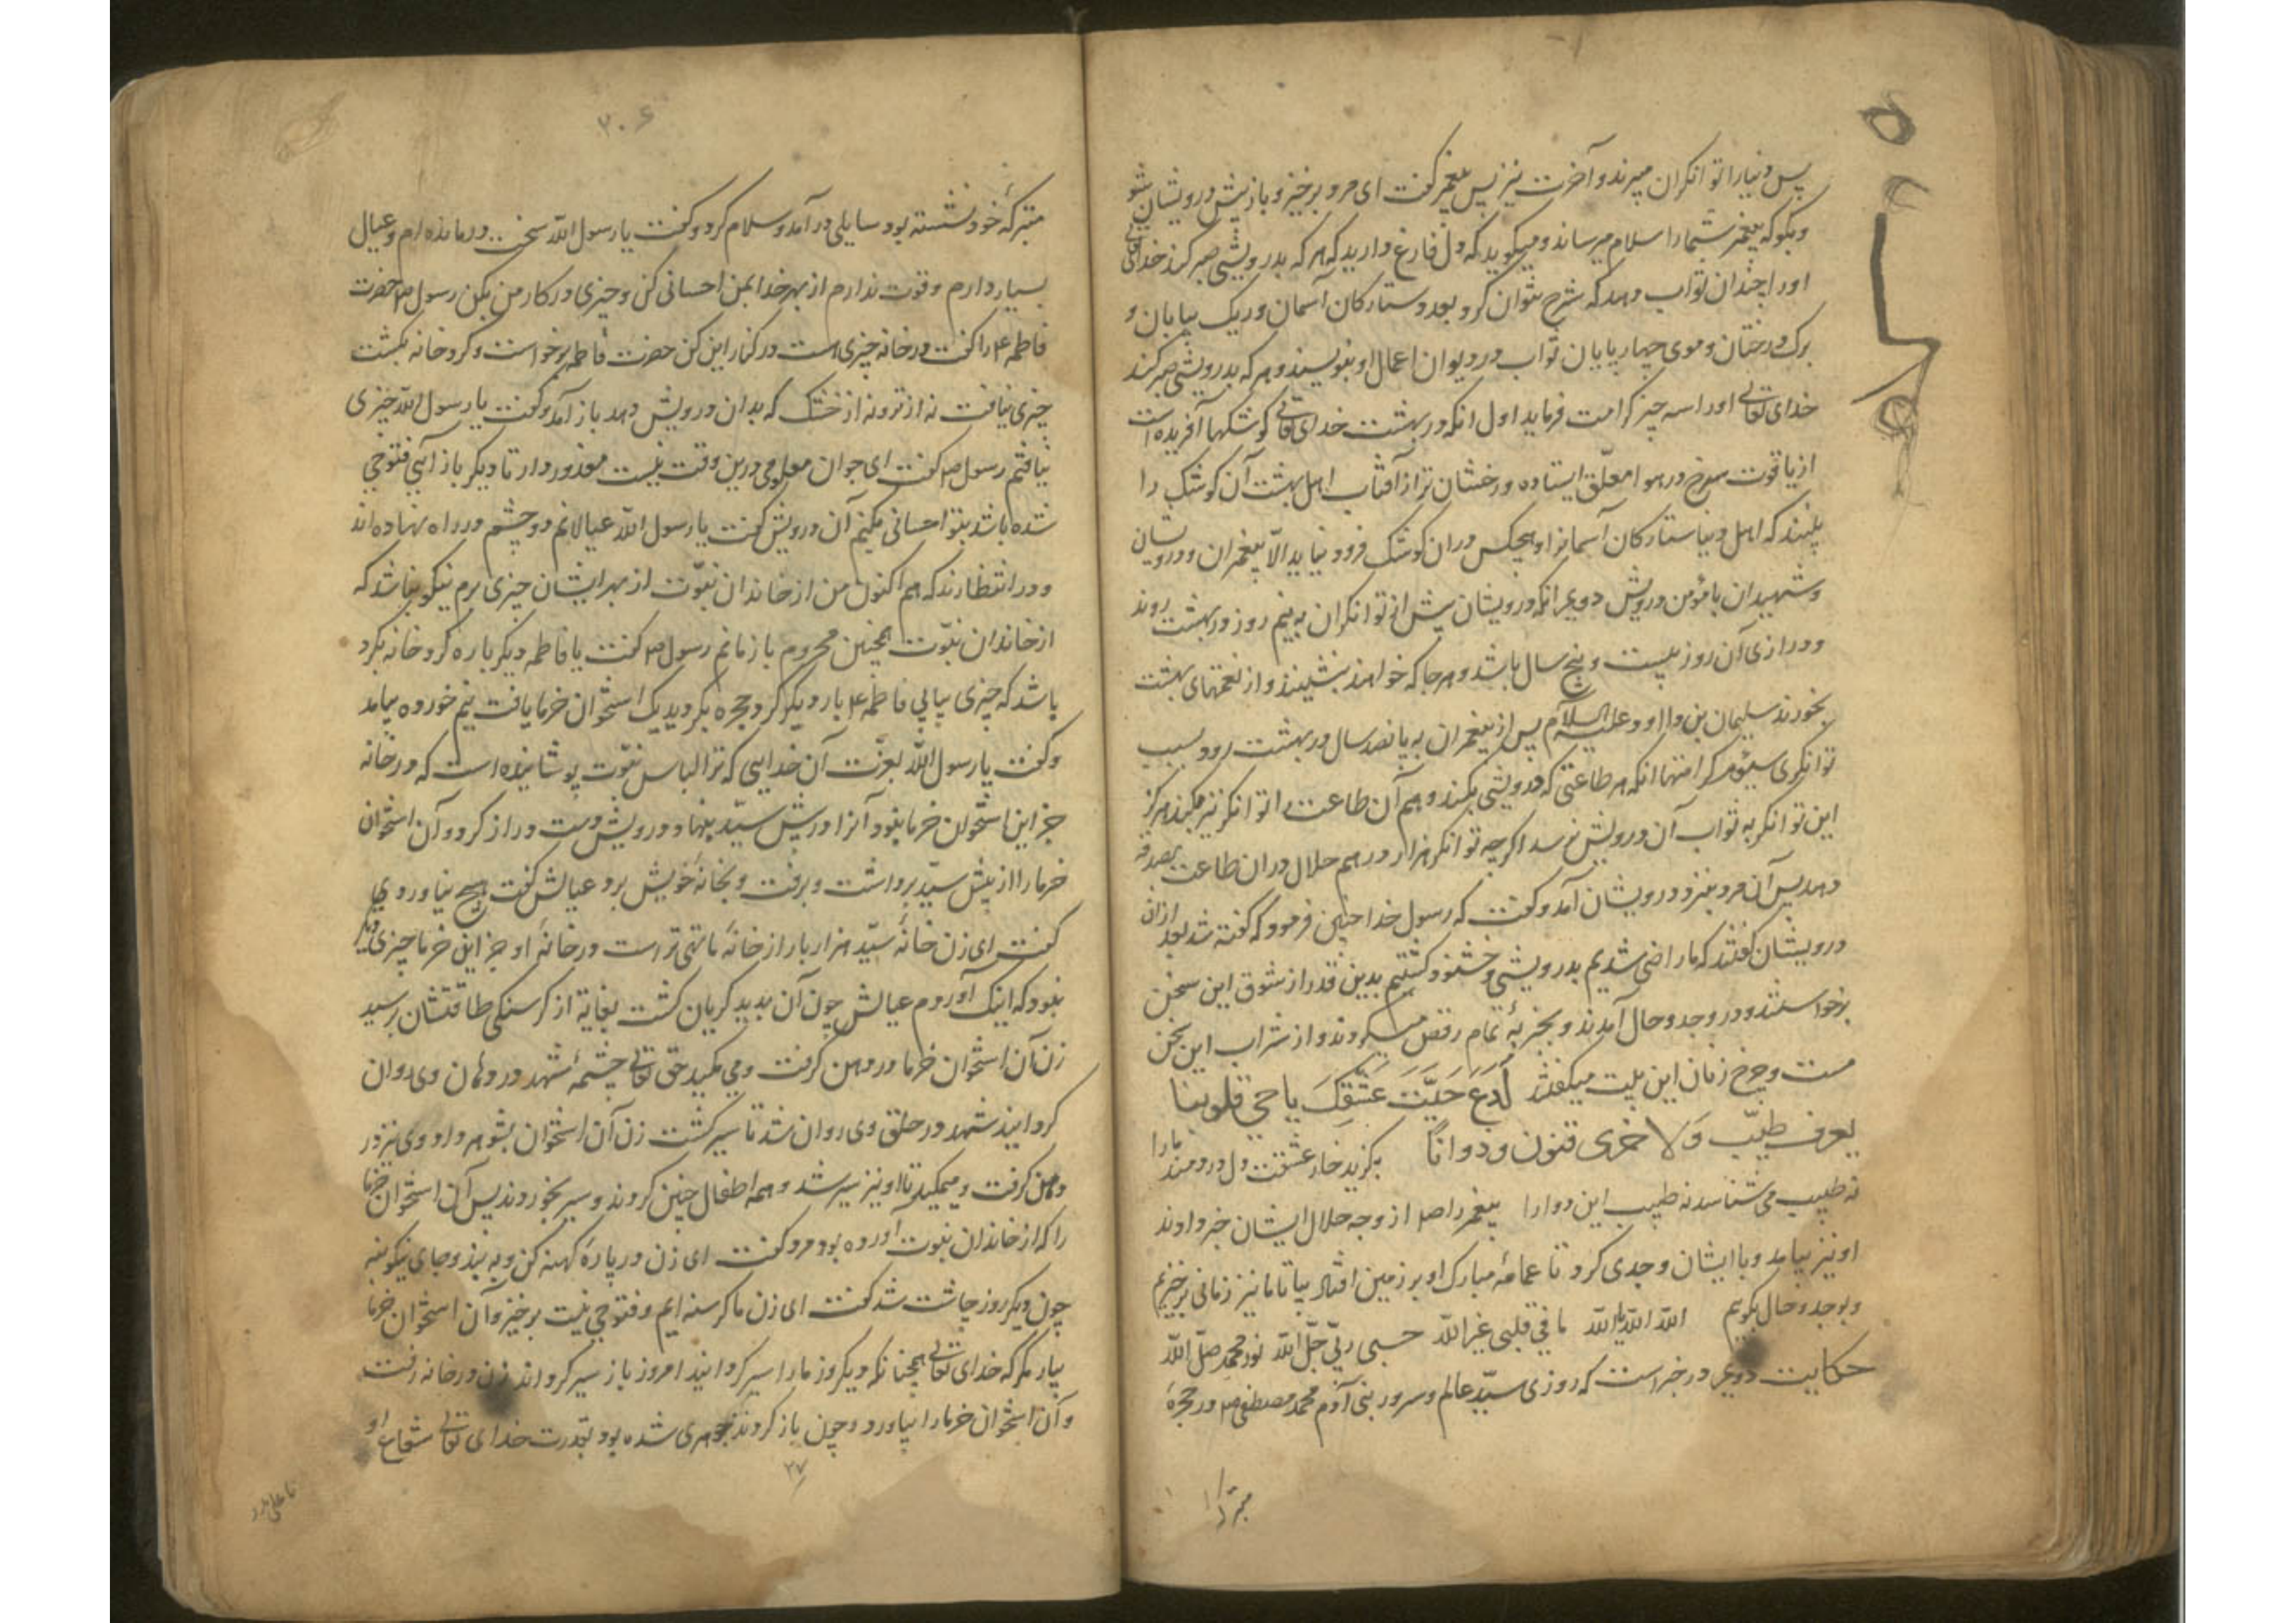 پس دنیا را توانکران میبرند و آخرت نیز پس پیغمبر کفت ای مرد برخیز و باز پیش درویشان شو
و بکو که پیغمبر شما را سلام میرساند و میکوید که دل فارغ دارید که هر که بدرویشی صبر کند خدای تعالی
او را چندان ثواب دهد که شرح نتوان کرد بعدد ستارکان آسمان و ریک بیابان و
برک درختان و موی چهارپایان ثواب در دیوان اعمال او بنویسند و هر که بدرویشی صبر کند
خدای تعالی او را سه چیز کرامت فرماید اول انکه در بهشت خدای تعالی کوشکها آفریده است
از یاقوت سرخ در هوا معلّق ایستاده درخشان تر از آفتاب اهل بهشت آن کوشک را
بینند که اهل دنیا ستارکان آسمانرا و هیچکس دران کوشک فرود نیاید الّا پیغمبران و درویشان
و شهیدان با مؤمن درویش دویم انکه درویشان پیش از توانکران به نیم روز در بهشت روند
و درازی آن روز بیست و پنج سال باشد و هر جا که خواهند بنشینند و از نعمتهای بهشت
بخورند سلیمان بن داود علیه السلام پس از پیغمبران به پانصد سال در بهشت رود بسبب
توانکری سیّوم کرامتها انکه هر طاعتی که درویشی بکند و هم آن طاعت را توانکر نیز بکند هرکز
این توانکر به ثواب آن درویش نرسد اکرچه توانکر هزار درهم حلال دران طاعت بصدقه
دهد پس آن مرد بنزد درویشان آمد و کفت که رسول خدا چنین فرمود که کفته شد بعد ازان
درویشان کفتند که ما راضی شدیم بدرویشی و خشنود کشتیم بدین قدر از شوق این سخن
برخواستند و در وجد و حال آمدند و بجذبهٔ تمام رقص میکردند و از شراب این سخن
مست و چرخ زنان این بیت میکفتند لَدَغَ حَیَّتَ عَشقِکَ یا حی قلوبنا
یعرف طبیب وَلا خری فنون و دوانًا بکزید خار عشقت دل دردمند ما را
نه طبیب می شناسد نه طبیب این دوا را پیغمبر را ص از وجد حلال ایشان خبر دادند
او نیز بیامد و با ایشان وجدی کرد تا عمامهٔ مبارک او بر زمین افتاد بیا تا ما نیز زمانی برخیزیم
و بوجد و حال بکویم الله الله یا الله ما فی قلبی غیر الله حسبی ربّی جلّ الله نور محمد صلّ الله
حکایت دویم در خبر است که روزی سیّد عالم و سرور بنی آدم محمد مصطفی ص در حجرهٔ
متبرکهٔ
۳۰۶
متبرکهٔ خود نشسته بود سایلی در آمد و سلام کرد و کفت یا رسول الله سخت درمانده ام و عیال
بسیار دارم و قوت ندارم از بهر خدا بمن احسانی کن و چیزی در کار من بکن رسول ص حضرت
فاطمه ع را کفت در خانه چیزی است در کنار این کن حضرت فاطمه برخواست و کرد خانه بکشت
چیزی نیافت نه از تر و نه از خشک که بدان درویش دهد باز آمد و کفت یا رسول الله چیزی
نیافتم رسول ص کفت ای جوان معلومی درین وقت نیست معذور دار تا دیکر باز آیی فتوحی
شده باشد بتو احسانی بکنیم آن درویش کفت یا رسول الله عیالانم دو چشم در راه نهاده اند
و در انتظارند که هم اکنون من از خاندان نبوّت از بهر ایشان چیزی برم نیکو نباشد که
از خاندان نبوّت همچنین محروم باز مانم رسول ص کفت یا فاطمه دیکر باره کرد خانه بکرد
باشد که چیزی بیابی فاطمه ع بار دیکر کرد حجره بکردید یک استخوان خرما یافت نیم خورده بیامد
و کفت یا رسول الله بعزّت آن خدایی که ترا لباس نبوّت پوشانیده است که در خانه
جز این استخوان خرما نبود آنرا در پیش سیّد بنهاد و درویش دست دراز کرد و آن استخوان
خرما را از پیش سیّد برداشت و برفت و بخانهٔ خویش برد عیالش کفت هیچ نیاوردی
کفت ای زن خانهٔ سیّد هزار بار از خانهٔ ما تهی تر است در خانهٔ او جز این خرما چیزی دیکر
نبود که اینک آوردم عیالش چون آن بدید کریان کشت بغایة از کرسنکی طاقتشان رسید
زن آن استخوان خرما در دهن کرفت و می مکید حق تعالی چشمهٔ شهد در دهان وی روان
کردانید شهد در حلق وی روان شد تا سیر کشت زن آن استخوان بشوهر داد وی نیز در
دهن کرفت و میمکید تا او نیز سیر شد و همه اطفال چنین کردند و سیر بخوردند پس آن استخوان خرما
را که از خاندان نبوت آورده بود مرد کفت ای زن در پارهٔ کهنه کن و به بند و جای نیکو بنه
چون دیکر روز چاشت شد کفت ای زن ما کرسنه ایم و فتوحی نیست برخیز و آن استخوان خرما
بیار مکر که خدای تعالی همچنانکه دیکروز ما را سیر کردانید امروز باز سیر کرداند زن در خانه رفت
و آن استخوان خرما را بیاورد و چون باز کردند جوهری شده بود بقدرت خدای تعالی شعاع او
۲۷